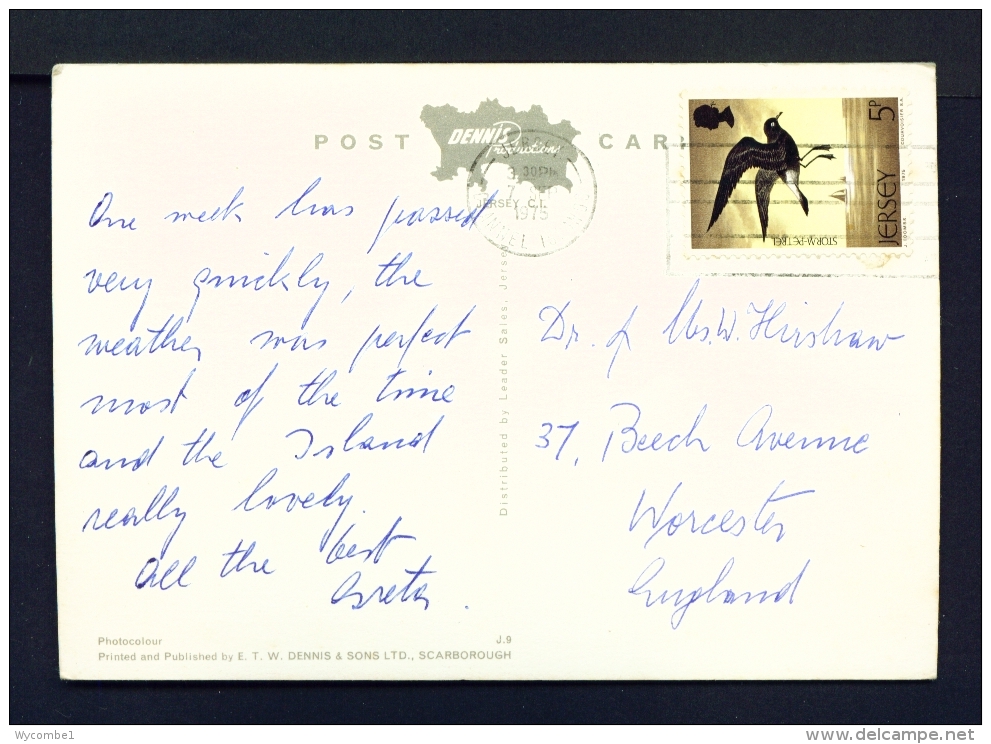 POST CARD
DENNIS
Productions
3.30PM
JERSEY C.I.
1975
5P
JERSEY
STORM PETREL
1975
COURVOISIER S.A.
J. TOOMBS
One week has passed
very quickly, the
weather was perfect
most of the time
and the Island
really lovely.
All the best
Greta.
Distributed by Leader Sales, Jersey
Dr. & Mrs. W. Hirshaw
37, Beech Avenue
Worcester
England
Photocolour
J.9
Printed and Published by E. T. W. DENNIS & SONS LTD., SCARBOROUGH
Wycombe1
delcampe.net